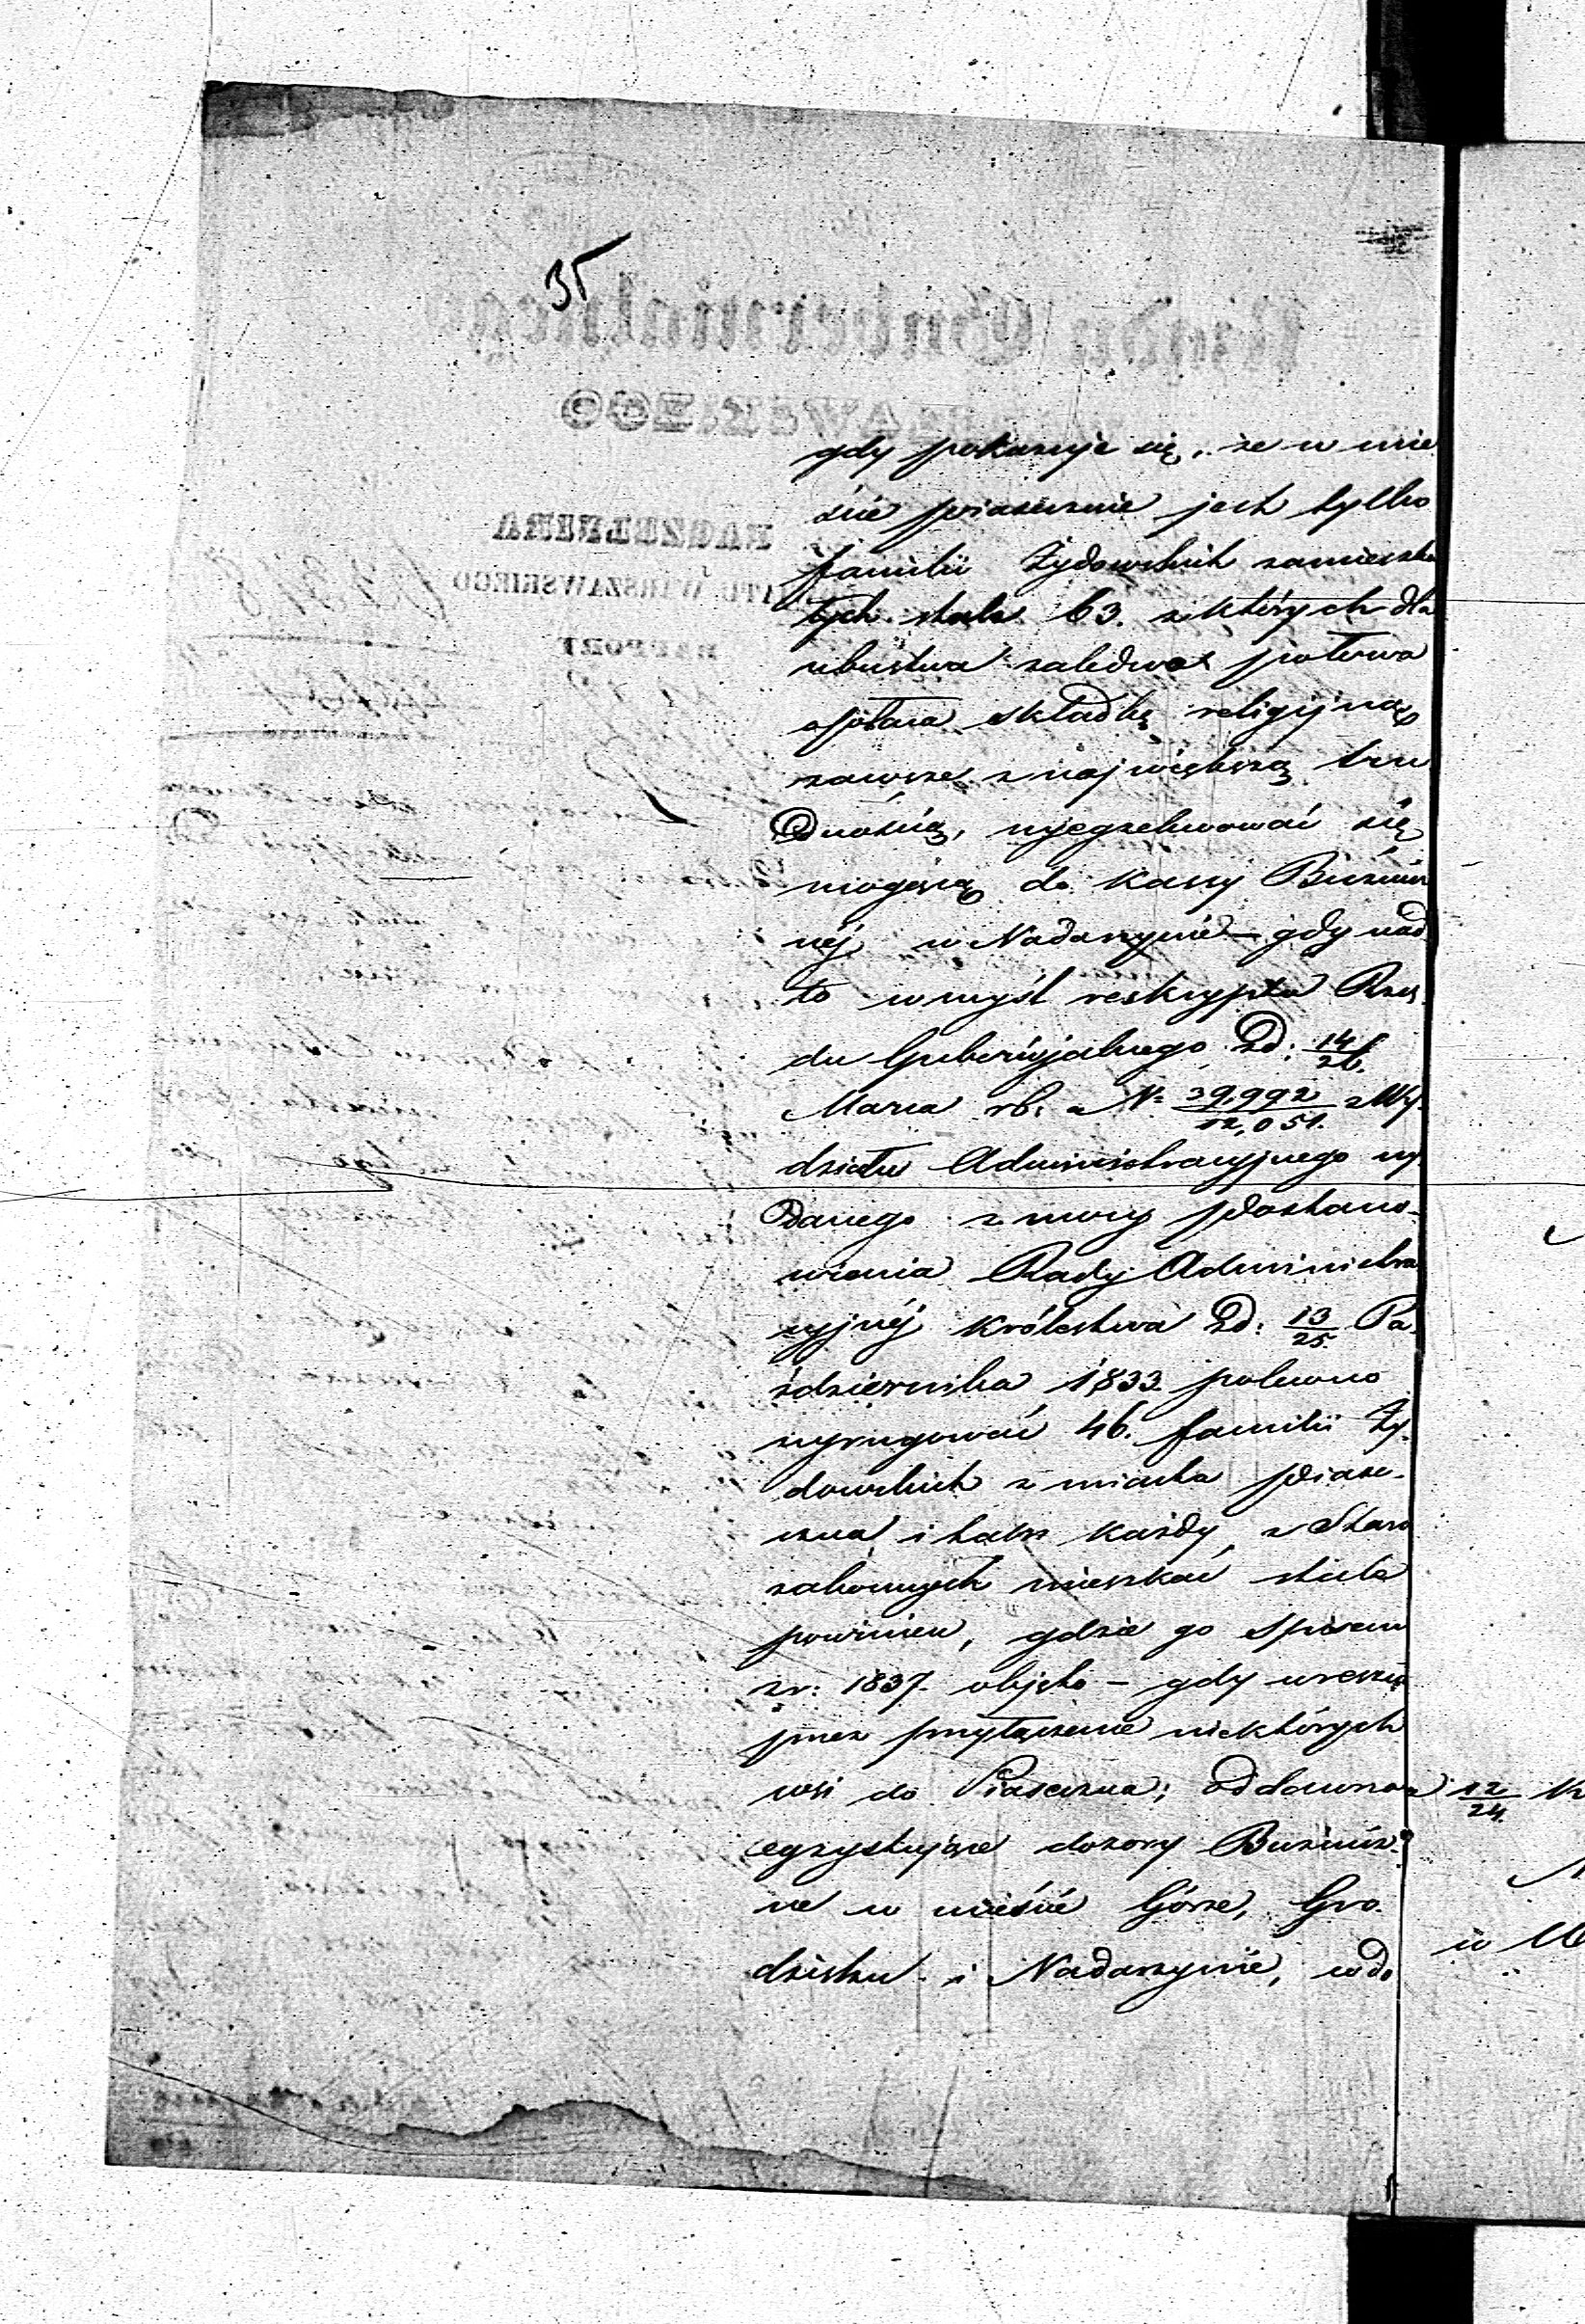 35
gdy pokazuje się, że w mie
ście piasecznie jest tylko
familii Żydowskich zamieszka
łych stale 63. z których dla
ubustwa zaledwo połowa
opłaca składkę religijną
zawsze z największą tru
dnością, wyegzekwować się
mogącą do kassy Buźnicz
néj w Nadarzynie – gdy nad
to w myśl reskryptu Rzą
du Gubernijalnego Dd: 14/26.
Marca rb. N. 39,992/12,051. z Wy
działu Administracyjnego wy
danego z mocy postano-
wienia Rady Administra
cyjnéj Królestwa Dd: 13/25. Pa
ździernika 1833. polecono
wyrugować 46. familii Ży
dowskich z miasta piase-
czna, i każdy z Staro
zakonnych mieszkać
powinien, gdzie go spisem
z r: 1837. objęto – gdy wreszcie
przez przyłączenie niektórych
wsi do Piaseczna; oddawna
egzystujące dozory Buźnicz
ne w mieście Górze, Gro
dzisku i Nadarzynie, wdo
12/24.